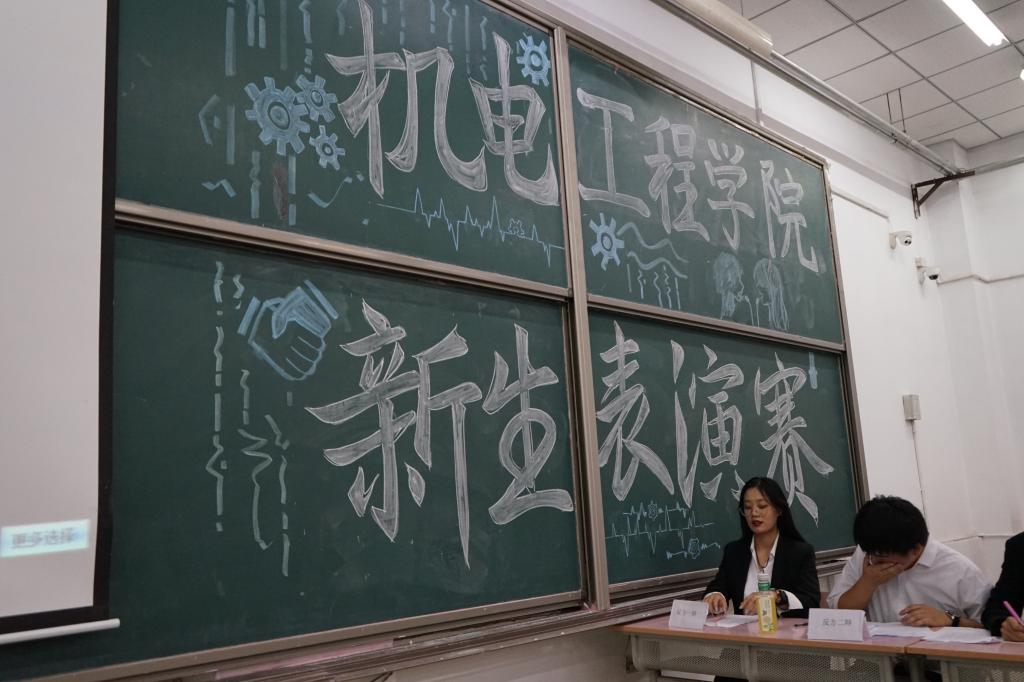 机电工程学院
新生表演赛
更多选择
反方一辩
反方二辩